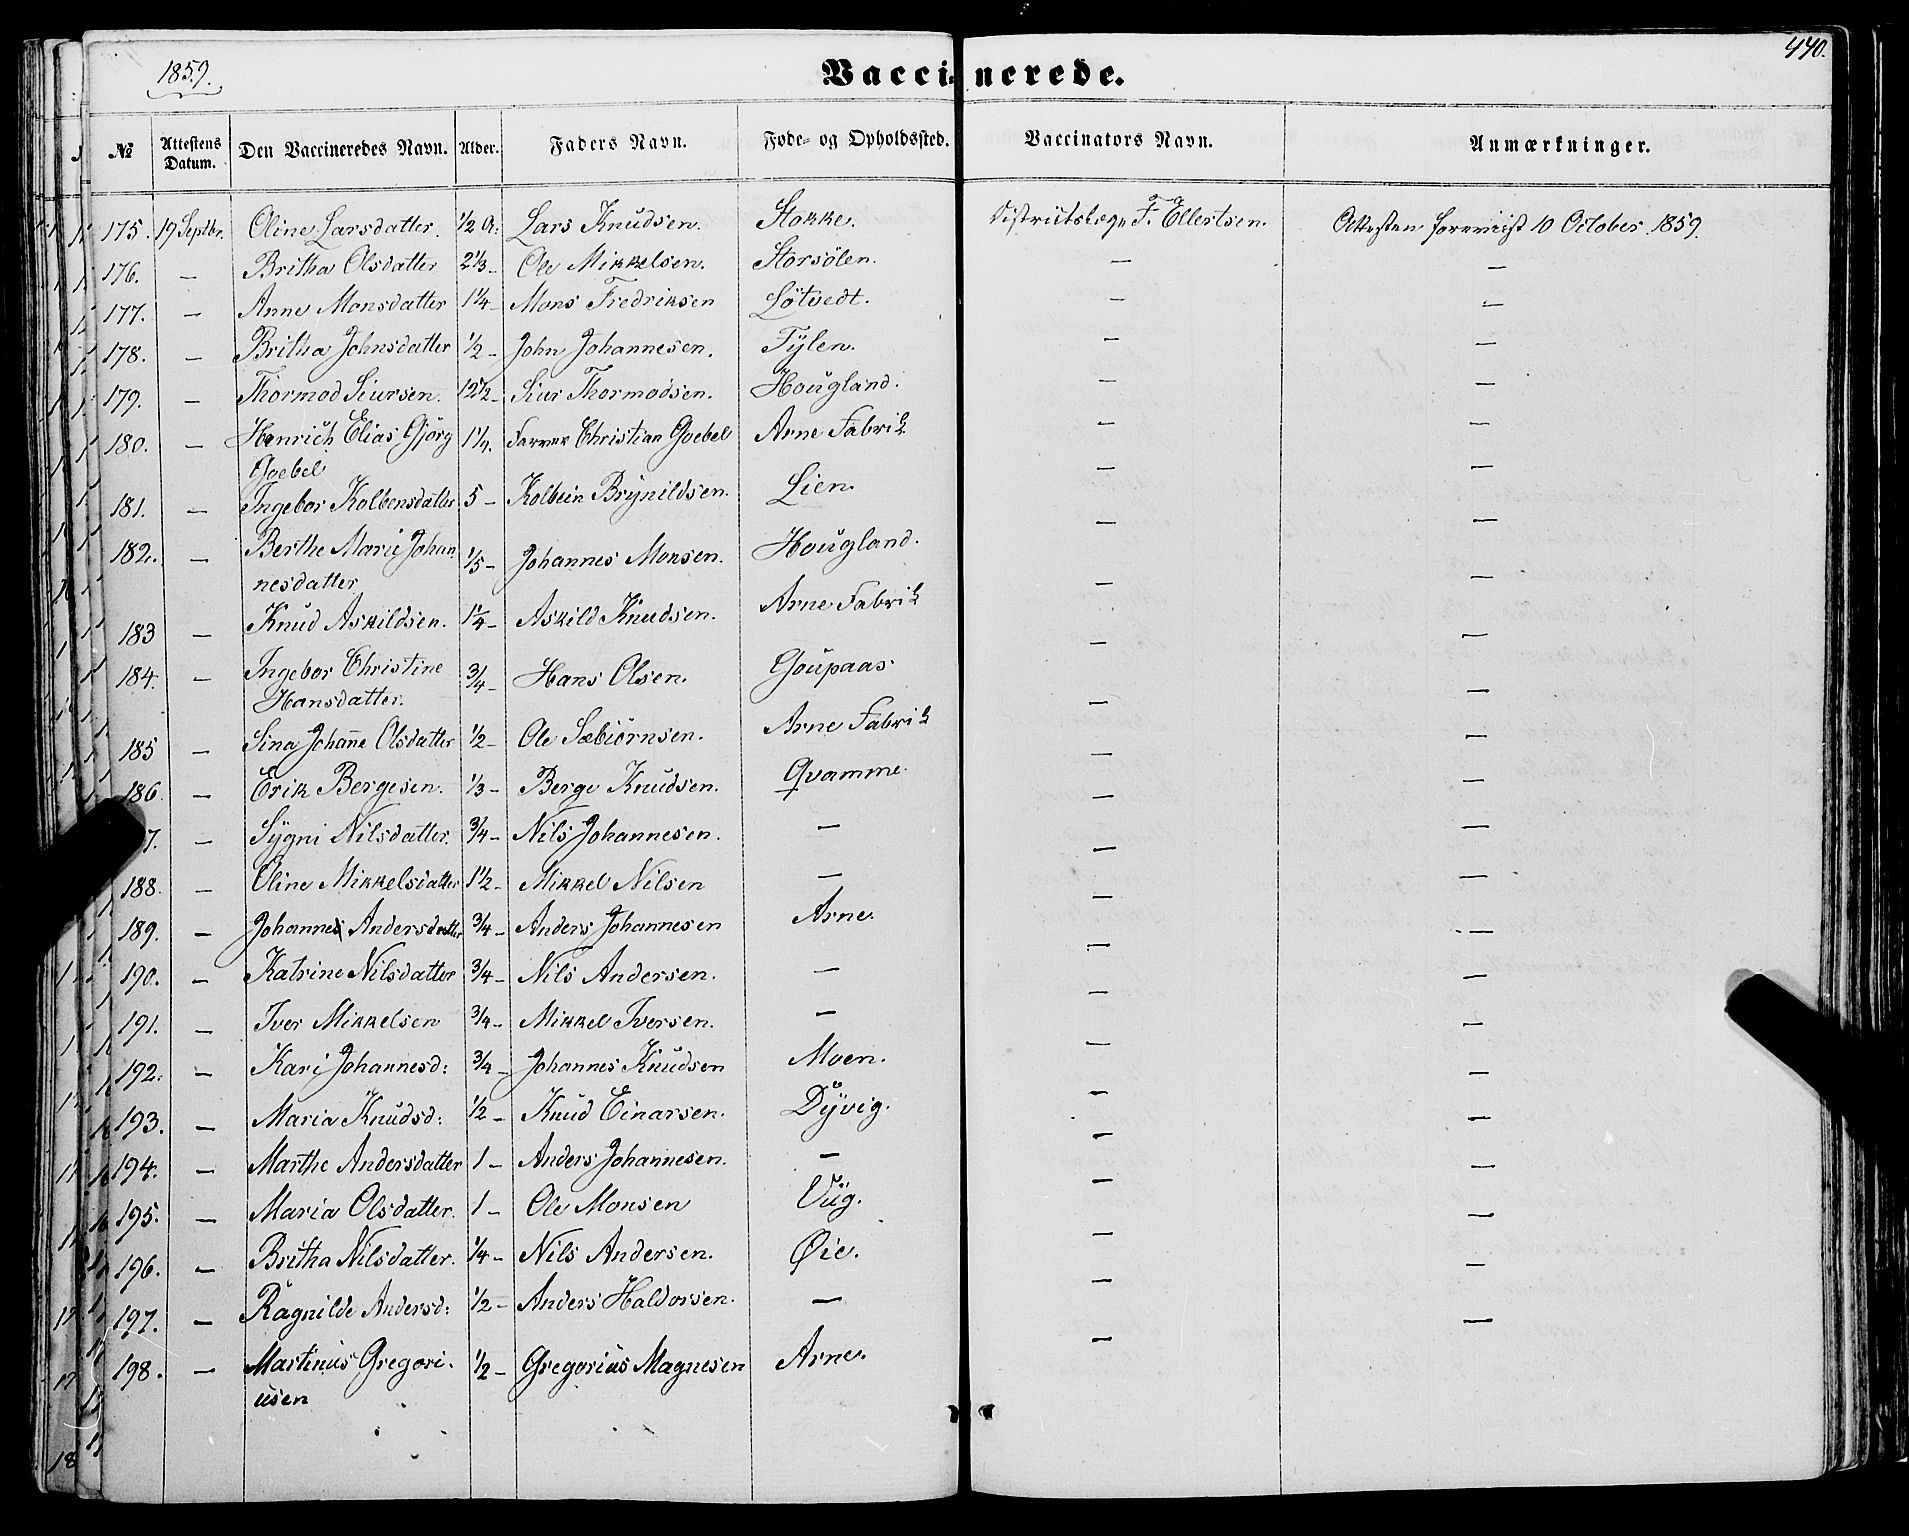 1859.
Vaccinerede.
440.
№ Attestens Datum. Den Vaccineredes Navn. Alder. Faders Navn. Føde- og Opholdssted. Vaccinators Navn. Anmærkninger.
175. 19 Septbr. Oline Larsdatter. 1/2 A: Lars Knudsen. Stokke. Districtslæge F. Ellertsen. Attesten foreviist 10 October 1859.
176. — Britha Olsdatter 2 1/3 – Ole Mikkelsen. Storsölen. — —
177. — Anne Monsdatter 1 1/4 – Mons Fredriksen Lötvedt. — —
178. — Britha Johnsdatter 1/2 – John Johannesen. Tylen. — —
179. — Thormod Siursen. 12 1/2 – Siur Thormodsen. Hougland. — —
180. — Henrich Elias Gjörg 1 1/4. Farver Christian Goebel Arne Fabrik — —
Goebel
181. — Ingebor Kolbensdatter 5 – Kolbein Brynildsen. Lien. — —
182. — Berthe Marie Johan 1/5 – Johannes Monsen. Hougland. — —
nesdatter
183 — Knud Askildsen. 1 1/4 – Askild Knudsen. Arne Fabrik — —
184. — Ingebor Christine 3/4 – Hans Olsen. Goupaas. — —
Hansdatter.
185 — Sina Johanne Olsdatter 1/2 – Ole Sæbiörnsen. Arne Fabrik — —
186. — Erik Bergesen. 1/3 – Berge Knudsen. Qvamme. — —
7. — Sygni Nilsdatter. 3/4 – Nils Johannesen. — — —
188. — Oline Mikkelsdatter 1 1/2 – Mikkel Nilsen — — —
189. — Johanne Andersdatter 3/4 – Anders Johannesen Arne. — —
190. — Katrine Nilsdatter 3/4 – Nils Andersen. — — —
191. — Iver Mikkelsen 3/4 – Mikkel Iversen. — — —
192. — Kari Johannesd: 3/4 – Johannes Knudsen Moen. — —
193. — Maria Knudsd: 1/2 – Knud Einarsen. Dyvig. — —
194. — Marthe Andersdatter 1 – Anders Johannesen. — — —
195. — Maria Olsdatter. 1 – Ole Monsen — —
196. — Britha Nilsdatter. 1/4 – Nils Andersen. Øie. — —
197. — Ragnilde Andersd: 1/2 – Anders Haldorsen. — — —
198. — Martinus Gregori- 1/2 – Gregorius Magnesen Arne. —
usen